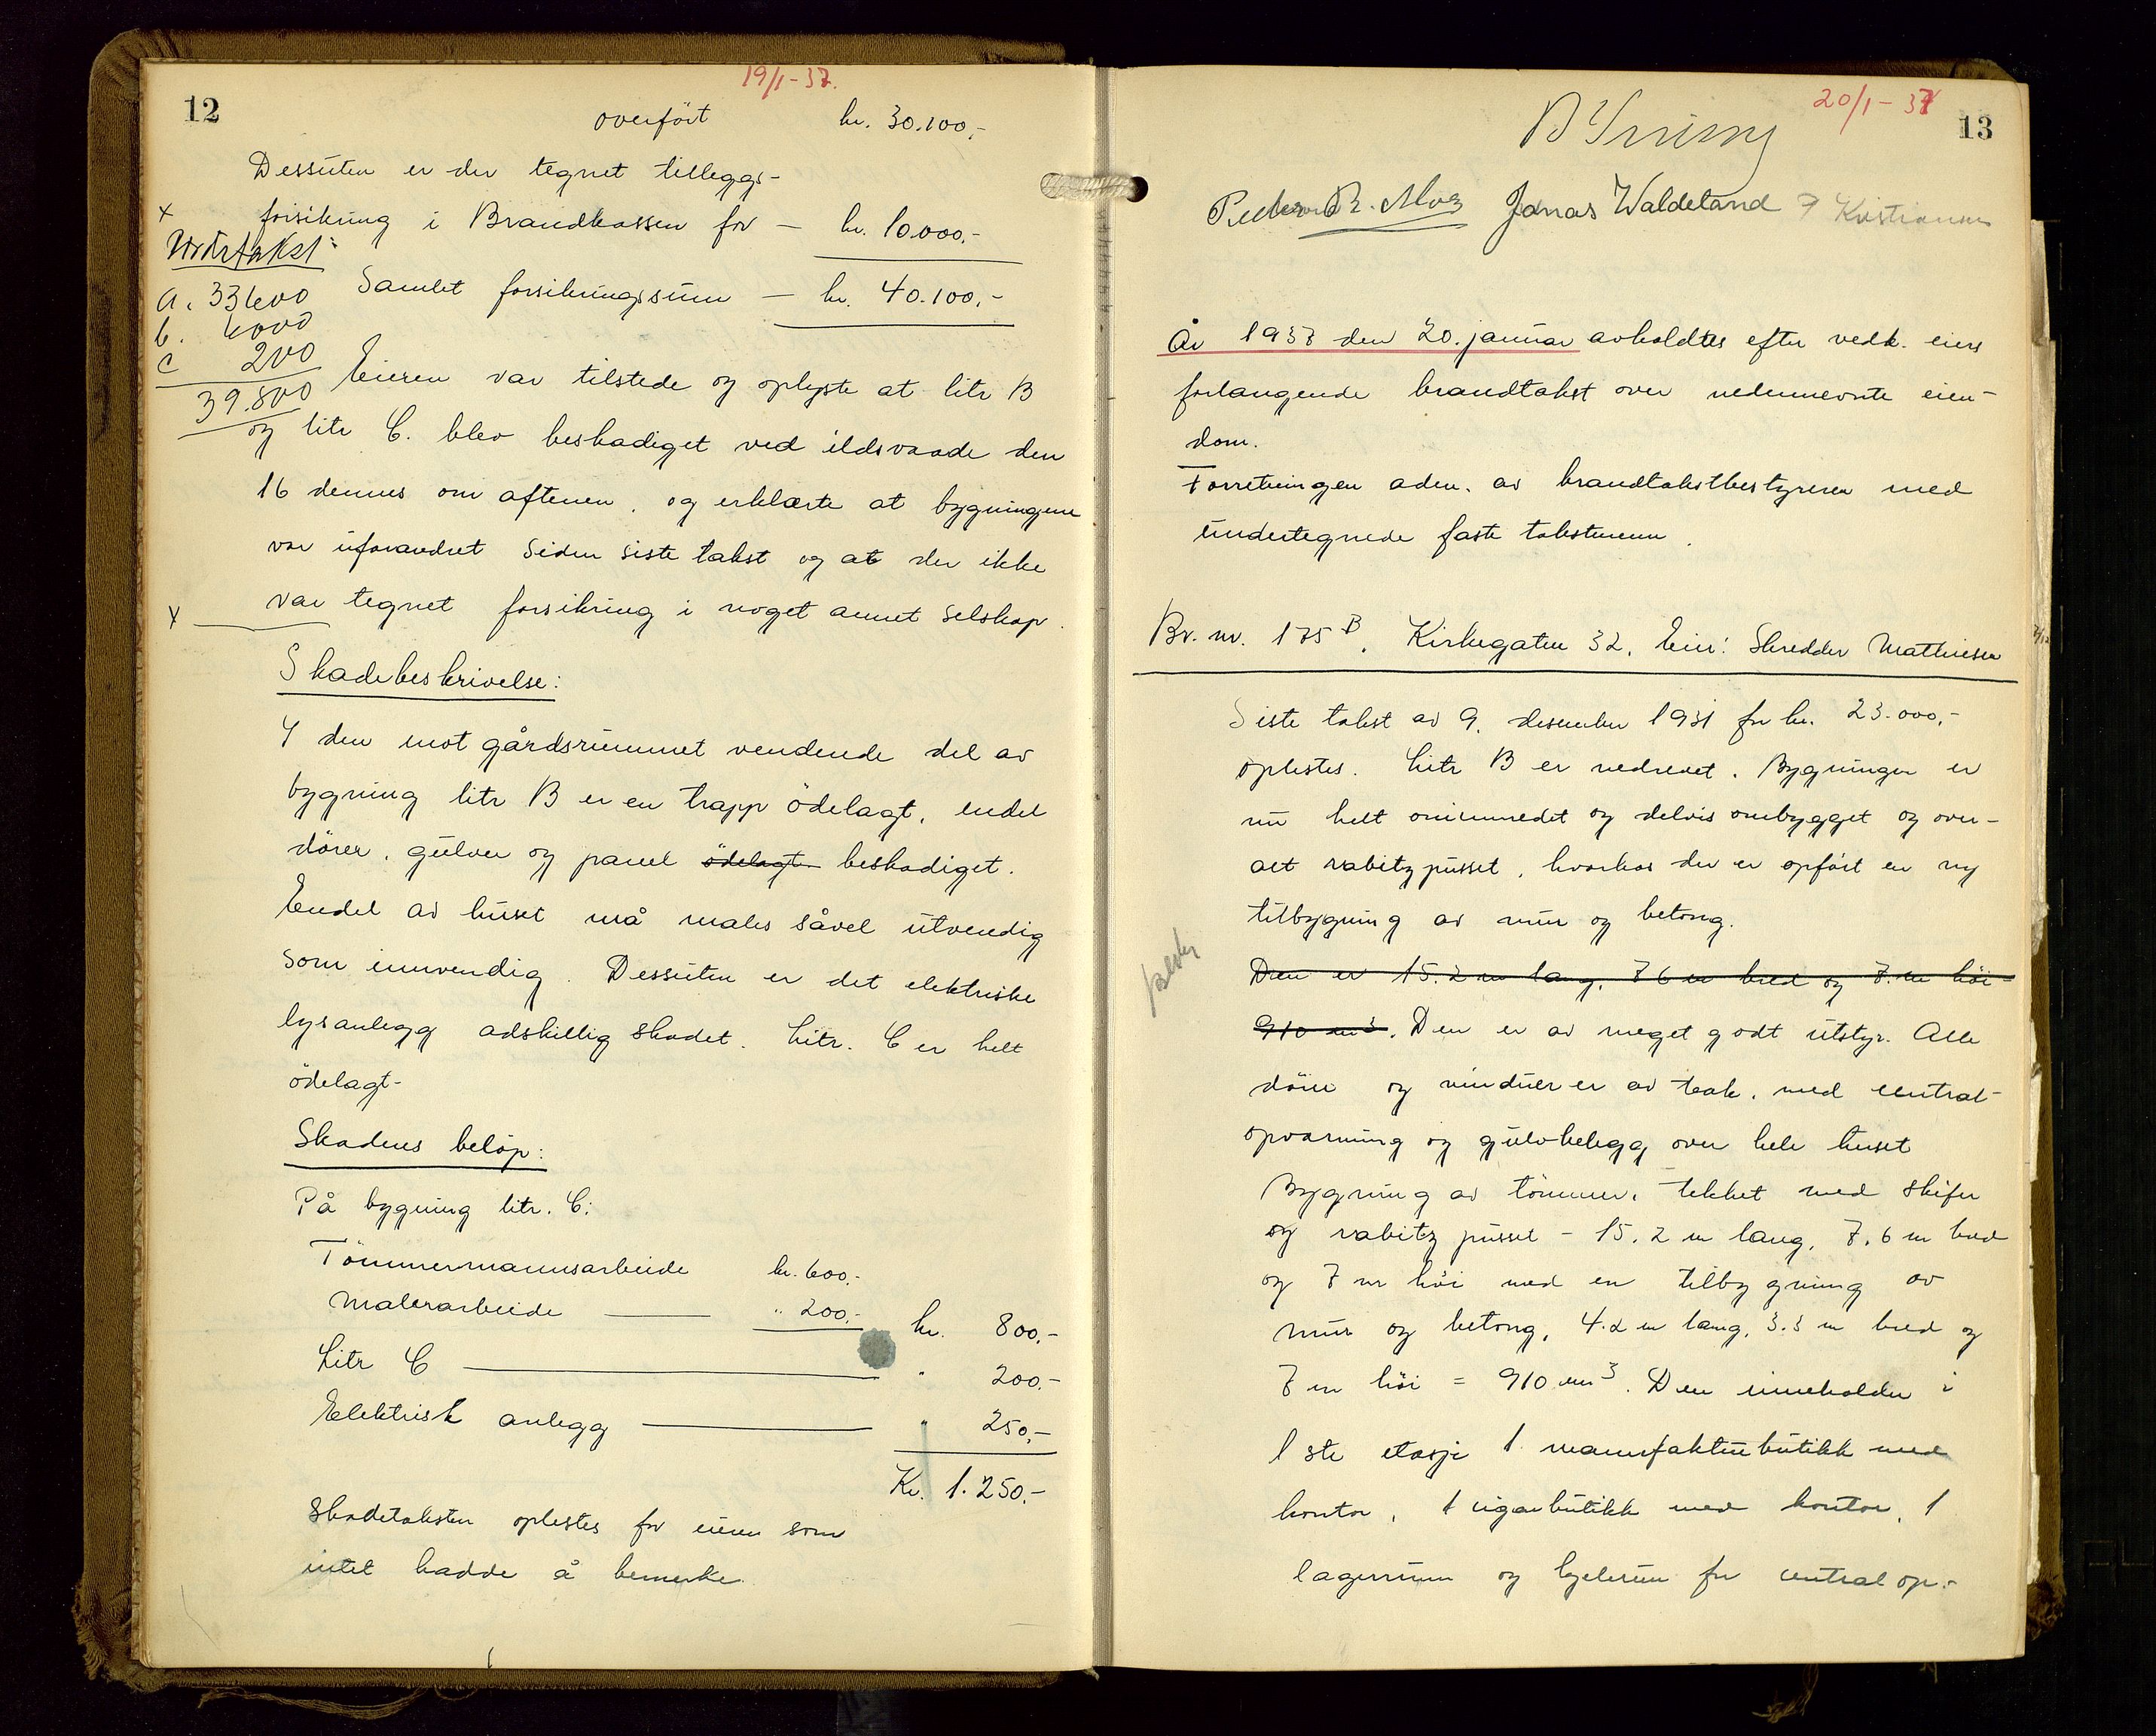 19/1-37.
12
overfört kr. 30.100,-
Dessuten er der tegnet tilleggs-
x forsikring i Brandkassen for — kr. 10.000.-
Verditakst:
Samlet forsikringssum — kr. 40.100.-
a. 33600
b. 6000
c 200
39.800
Eieren var tilstede og oplyste at litr B
og litr C. blev beskadiget ved ildsvaade den
16 dennes om aftenen, og erklærte at bygningene
var uforandret siden siste takst og at der ikke
x var tegnet forsikring i noget annet selskap.
Skadebeskrivelse:
I den mot gårdsrummet vendende del av
bygning litr B er en trapp ödelagt, endel
dörer, gulver og panel ödelagt beskadiget.
Endel av huset må males såvel utvendig
som innvendig. Dessuten er det elektriske
lysanlegg adskillig skadet. Litr. C er helt
ödelagt-
Skadens belöp:
På bygning litr. C:
Tömmermannsarbeide kr. 600.-
Malerarbeide — " 200.- kr. 800.-
Litr C — " 200.-
Elektrisk anlegg — " 250,-
Kr. 1.250.-
Skadetaksten oplestes for eieren som
intet hadde å bemerke.
20/1-37
13
Peder R. Moe Jonas Waldeland F Kristiansen
År 1937 den 20. januar avholdtes efter vedk. eiers
forlangende brandtakst over nedennevnte eien-
dom.
Forretningen adm. av brandtakstbestyreren med
undertegnede faste takstmenn.
Br. nr. 175 B, Kirkegaten 32. Eier: Skredder Mathiesen
Siste takst av 9. desember 1931 for kr. 23.000,-
oplestes. Litr B er nedrevet. Bygningen er
nu helt ominnredet og delvis ombygget og over-
alt rabitzpusset, hvorhos der er opfört en ny
tilbygning av mur og betong.
Den er 15.2 m lang, 7 6 m bred og 7. m höi =
910 m3. Den er av meget godt utstyr. Alle
dörer og vinduer er av teak, med central-
opvarming og gulvbelegg over hele huset
Bygning av tömmer, tekket med skifer
og rabitzpusset - 15.2 m lang, 7.6 m bred
og 7 m höi med en tilbygning av
mur og betong, 4.2 m lang, 3.3 m bred og
7 m höi = 910 m3. Den inneholder i
1 ste etasje 1 manufakturbutikk med
kontor, 1 cigarbutikk med kontor, 1
lagerrum og kjelerum for central op.-